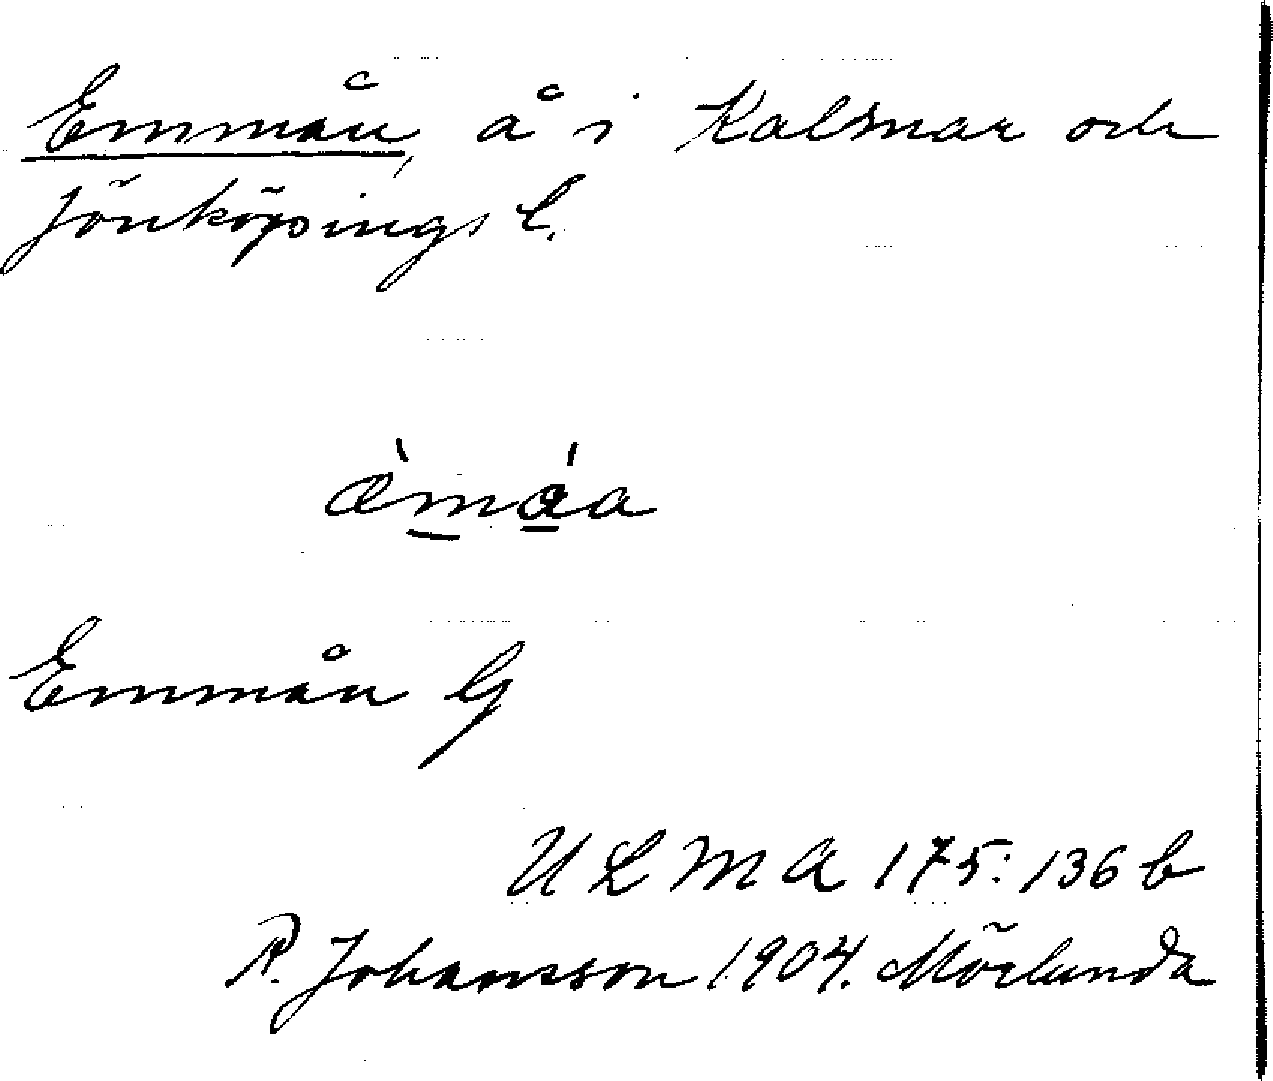 Emmån, å i Kalmar och
Jönköpings l.
æ̀m̲á̲a
Emmån G
ULMA 175:136 b
R. Johansson 1904. Mörlunda